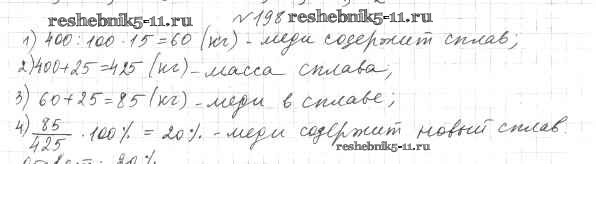 reshebnik5-11.ru №198 reshebnik5-11.ru
1) 400:100·15=60 (кг) - меди содержит сплав;
2) 400+25=425 (кг) - масса сплава;
3) 60+25=85 (кг) - меди в сплаве;
4) 85/425 · 100% = 20% - меди содержит новый сплав.
reshebnik5-11.ru
Ответ: 20%